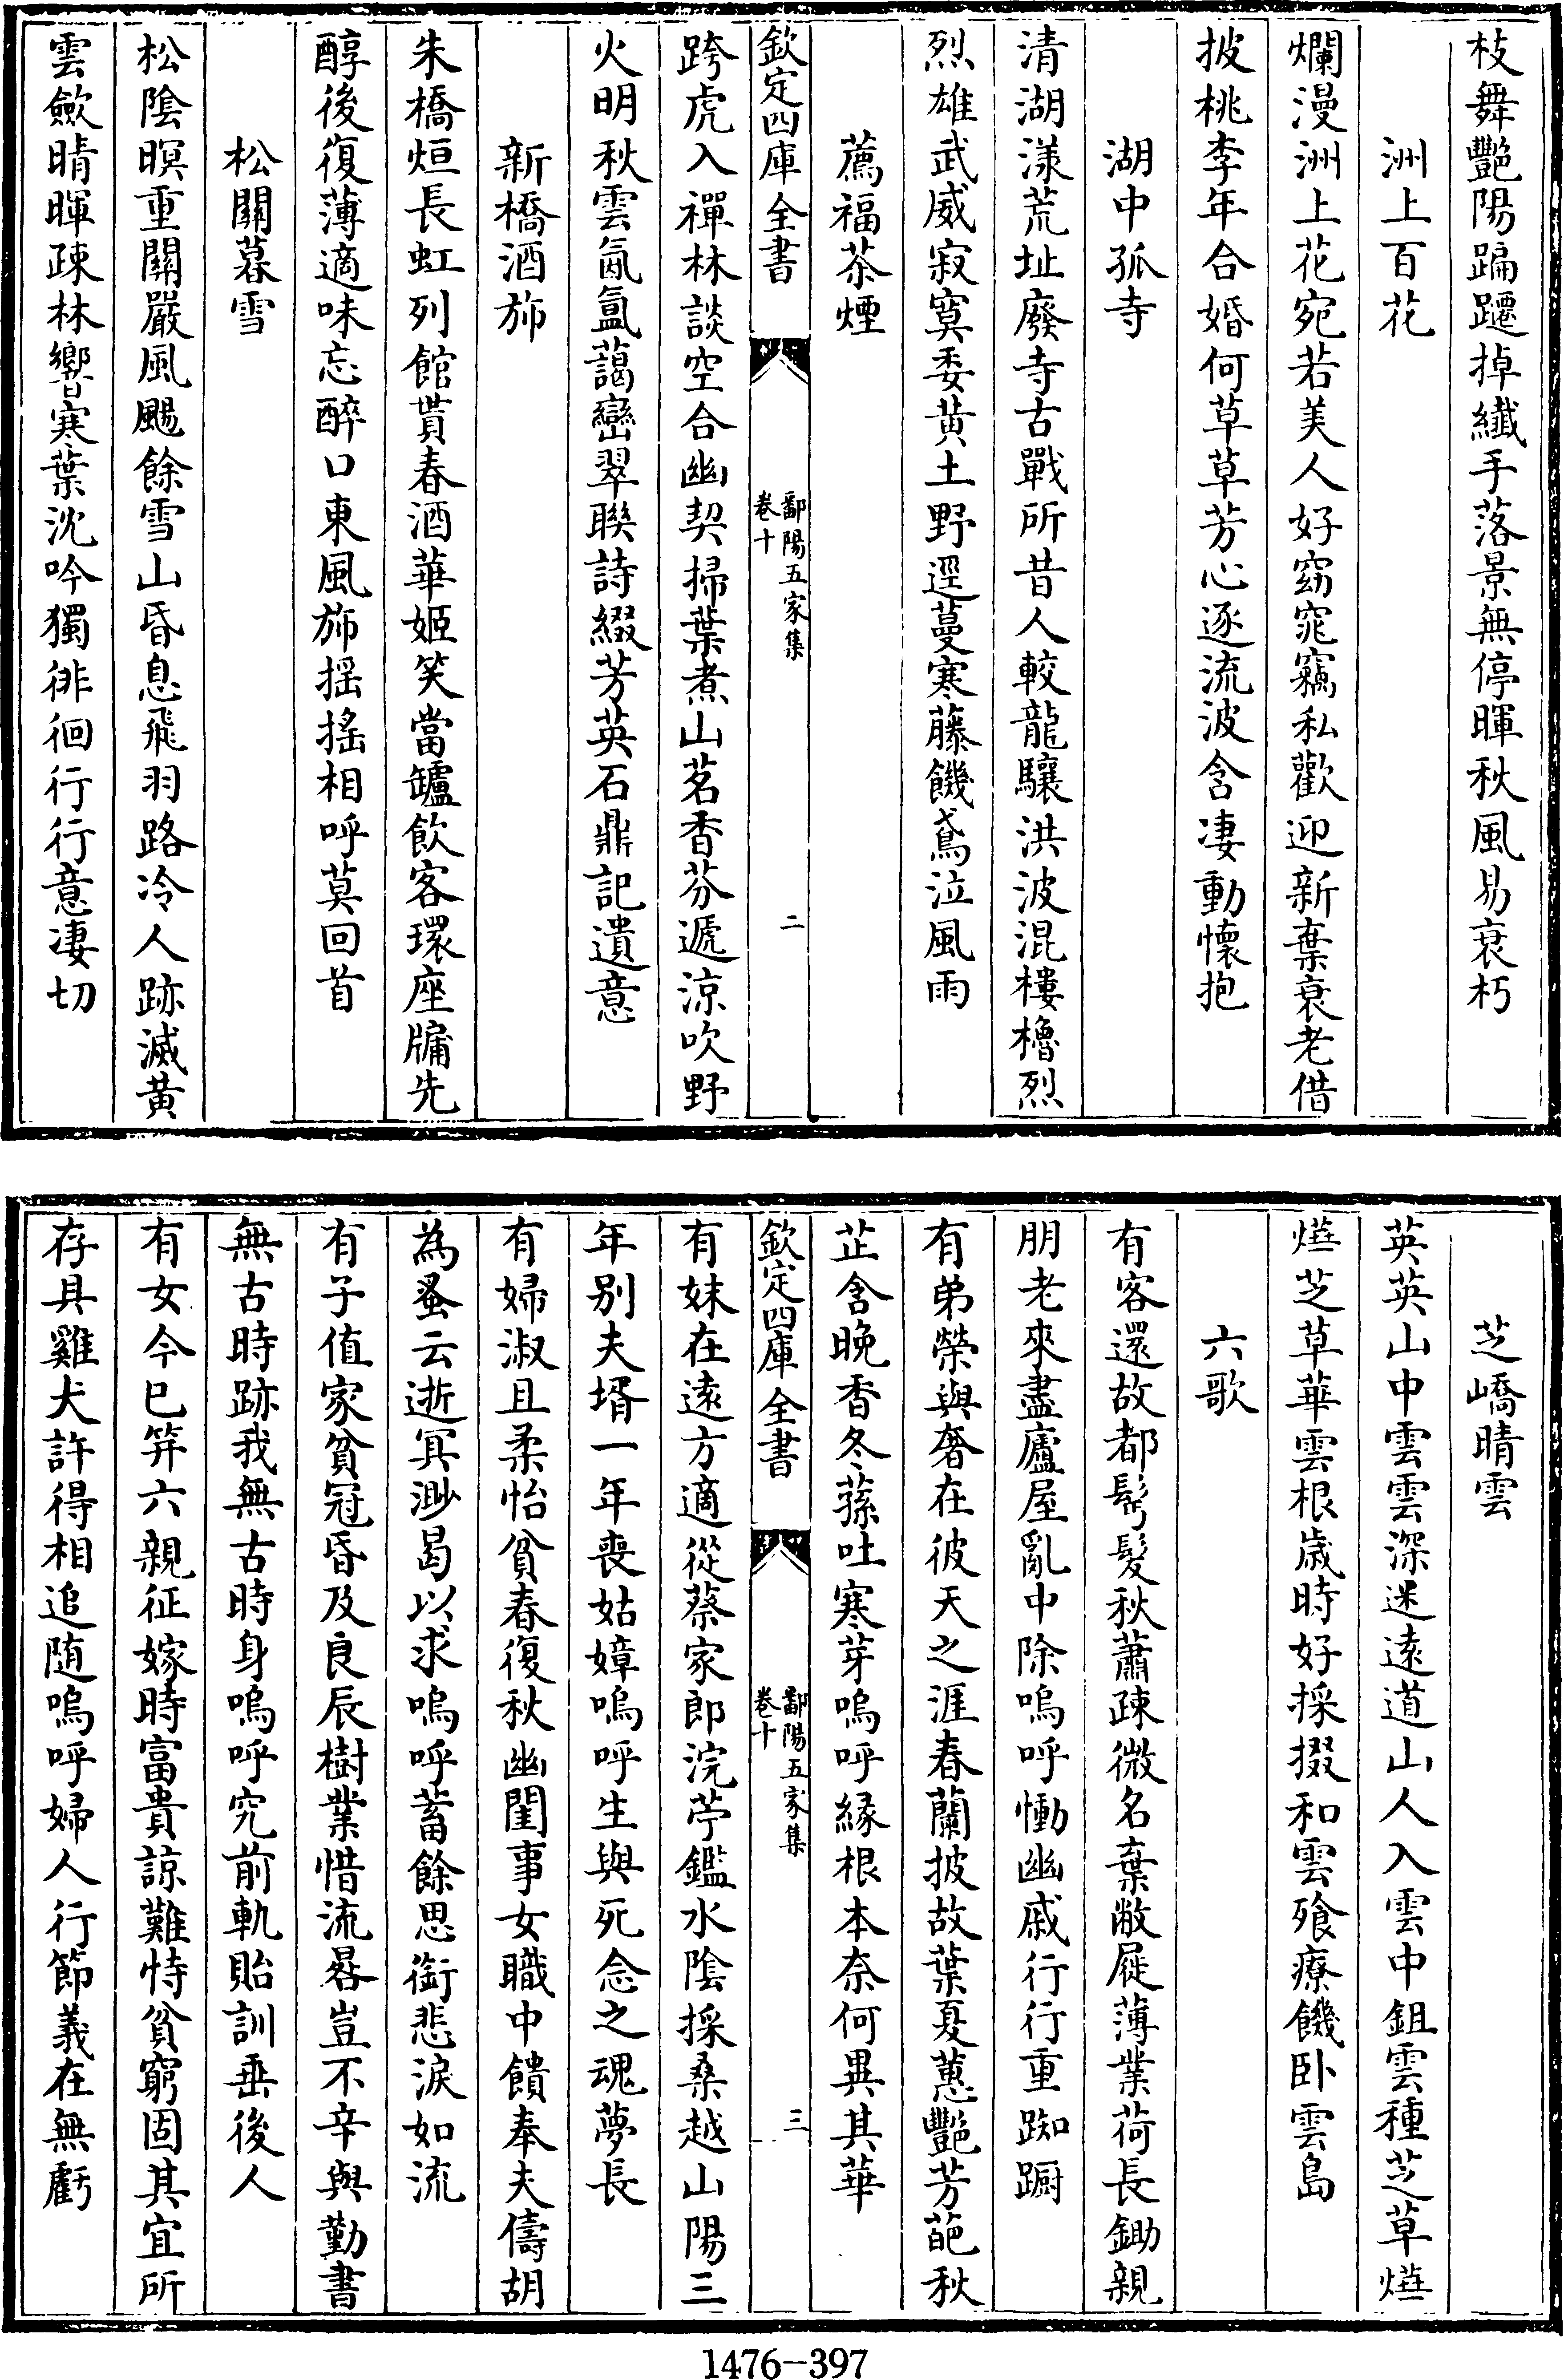 枝舞艷陽蹁躚掉纖手落景無停暉秋風易衰朽
洲上百花
爛漫洲上花宛若美人好窈窕竊私歡迎新棄衰老借
披桃李年合婚何草草芳心逐流波含凄動懷抱
湖中孤寺
清湖漾荒址廢寺古戰所昔人較龍驤洪波混樓櫓烈
烈雄武威寂寞委黃土野逕蔓寒藤饑鳶泣風雨
薦福茶煙
欽定四庫全書
鄱陽五家集
卷十
二
跨虎入禪林談空合幽契掃葉煮山茗香芬遞涼吹野
火明秋雲氤氳藹巒翠聯詩綴芳英石鼎記遺意
新橋酒斾
朱橋烜長虹列館貰春酒華姬笑當罏飲客環座牖先
醇後復薄適味忘醉口東風斾搖搖相呼莫回首
松關暮雪
松陰暝重關嚴風颺餘雪山昏息飛羽路冷人跡滅黃
雲歛晴暉疎林響寒葉沈吟獨徘徊行行意凄切
芝嶠晴雲
英英山中雲雲深迷遠道山人入雲中鉏雲種芝草燁
燁芝草華雲根歲時好採掇和雲飱療饑臥雲島
六歌
有客還故都鬅髮秋蕭疎微名棄敝屣薄業荷長鋤親
朋老來盡廬屋亂中除嗚呼慟幽戚行行重踟躕
有弟榮與奢在彼天之涯春蘭披故葉夏蕙艷芳葩秋
芷含晚香冬蓀吐寒芽嗚呼緣根本奈何異其華
欽定四庫全書
鄱陽五家集
卷十
三
有妹在遠方適從蔡家郎浣苧鑑水陰採桑越山陽三
年別夫壻一年喪姑嫜嗚呼生與死念之魂夢長
有婦淑且柔怡貧春復秋幽閨事女職中饋奉夫儔胡
為蚤云逝冥渺曷以求嗚呼蓄餘思銜悲淚如流
有子值家貧冠昏及良辰樹業惜流晷豈不辛與勤書
無古時跡我無古時身嗚呼究前軌貽訓垂後人
有女今已笄六親征嫁時富貴諒難恃貧窮固其宜所
存具雞犬許得相追随嗚呼婦人行節義在無虧
1476-397